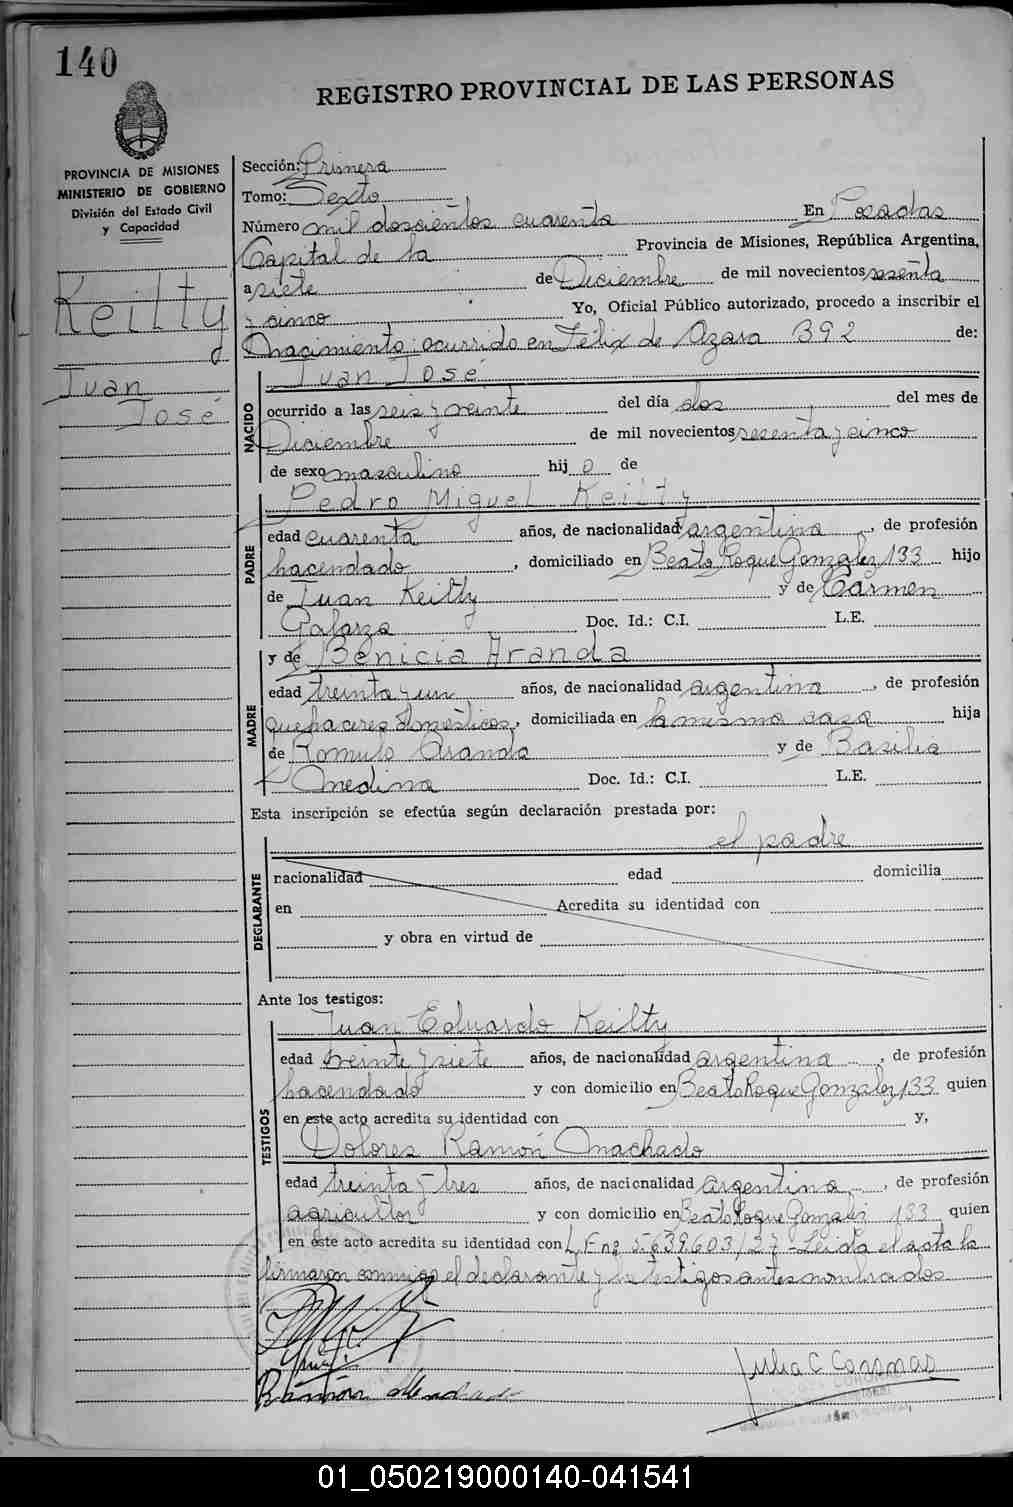 140
REGISTRO PROVINCIAL DE LAS PERSONAS
PROVINCIA DE MISIONES
MINISTERIO DE GOBIERNO
División del Estado Civil
y Capacidad
Keilty
Juan
José
Sección: Primera
Tomo: Sexto
Número mil doscientos cuarenta En Posadas
Capital de la Provincia de Misiones, República Argentina,
a siete de Diciembre de mil novecientos sesenta
y cinco Yo, Oficial Público autorizado, procedo a inscribir el
nacimiento: ocurrido en Félix de Azara 392 de:
NACIDO
Juan José
ocurrido a las seis y veinte del día dos del mes de
Diciembre de mil novecientos sesenta y cinco
de sexo masculino hij o de
PADRE
Pedro Miguel Keilty
edad cuarenta años, de nacionalidad argentina, de profesión
hacendado, domiciliado en Beato Roque Gonzalez 133 hijo
de Juan Keilty y de Carmen
Galarza Doc. Id.: C.I. L.E.
MADRE
y de Benicia Aranda
edad treinta y un años, de nacionalidad argentina, de profesión
quehaceres domésticos, domiciliada en la misma casa hija
de Romulo Aranda y de Basilia
Medina Doc. Id.: C.I. L.E.
Esta inscripción se efectúa según declaración prestada por:
el padre
DECLARANTE
nacionalidad edad domicilia
en Acredita su identidad con
y obra en virtud de
Ante los testigos:
TESTIGOS
Juan Eduardo Keilty
edad veinte y siete años, de nacionalidad argentina, de profesión
hacendado y con domicilio en Beato Roque Gonzalez 133 quien
en este acto acredita su identidad con y,
Dolores Ramón Machado
edad treinta y tres años, de nacionalidad argentina, de profesión
agricultor y con domicilio en Beato Roque Gonzalez 133 quien
en este acto acredita su identidad con L.E nº 5.639.603/27 - Leida el acta la
firmaron conmigo el declarante y los testigos antes nombrados
Ramón Machado
01_050219000140-041541